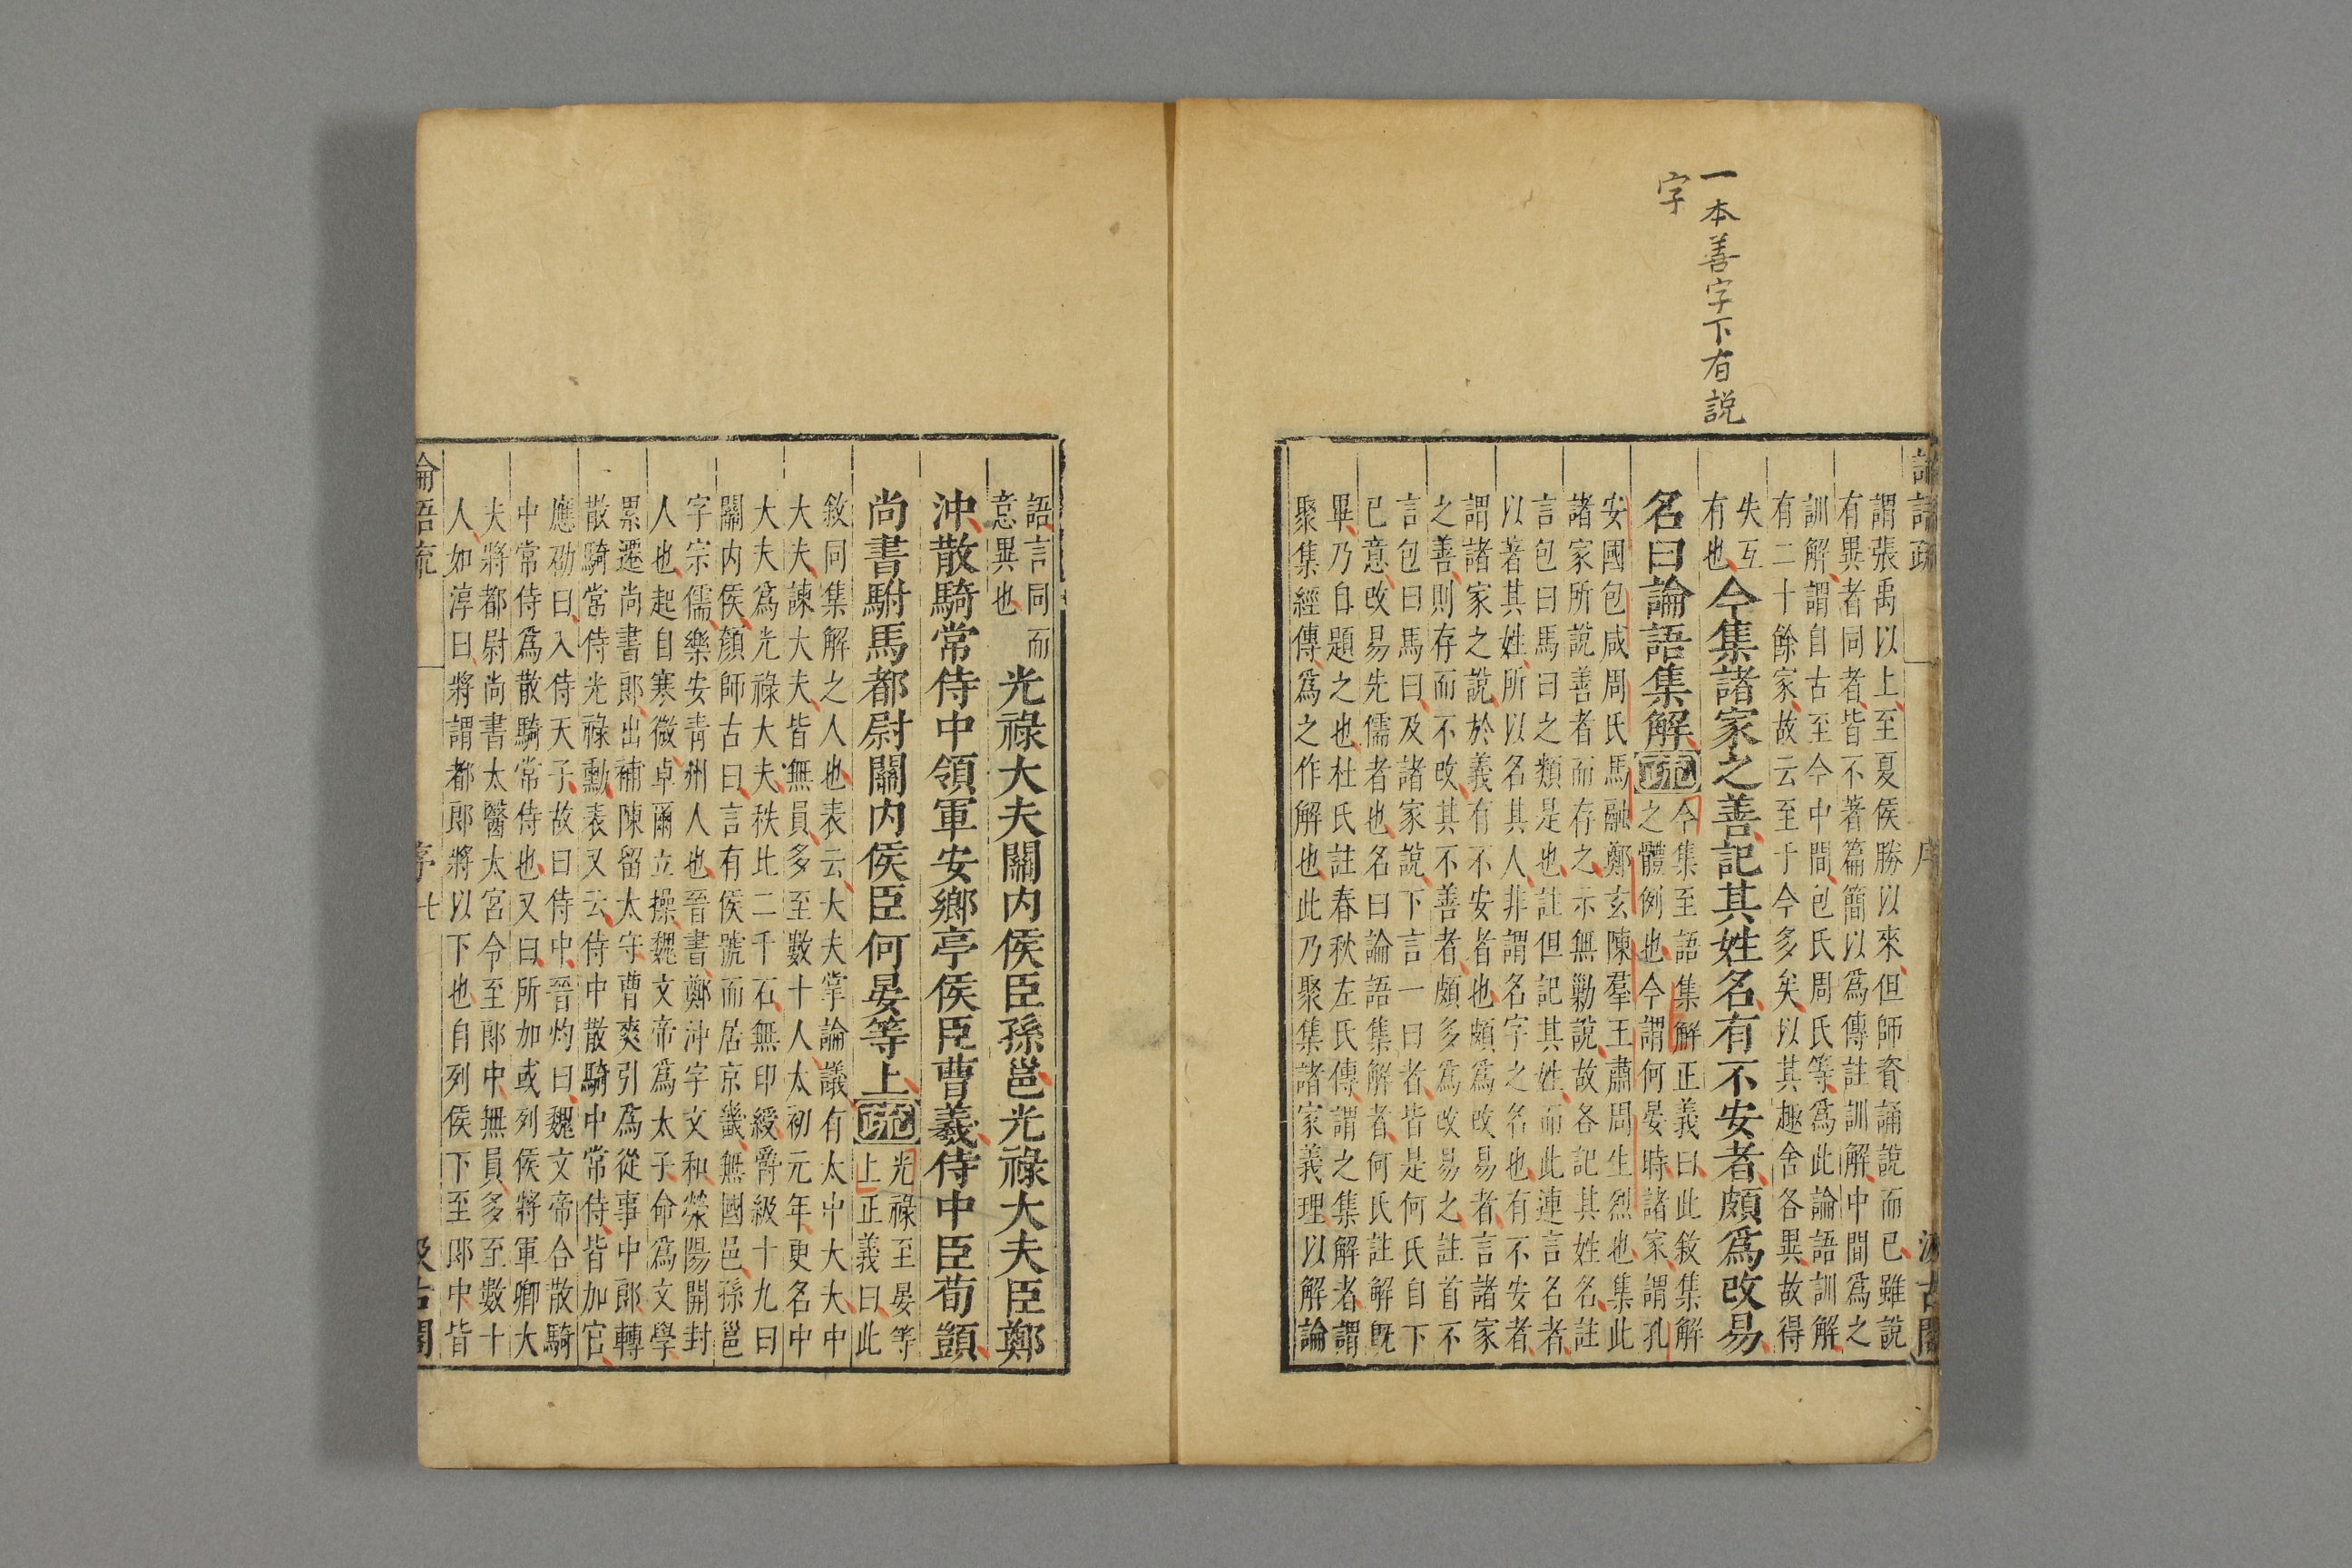 一本善字下有説
字
論語疏 序 汲古閣
謂張禹以上至夏侯勝以來但師資誦說而已雖說
有異者同者皆不著篇簡以爲傳註訓解中間爲之
訓解謂自古至今中間包氏周氏等爲此論語訓解
有二十餘家故云至于今多矣以其趣舍各異故得
失互
有也
今集諸家之善記其姓名有不安者頗爲改易
名曰論語集解疏
今集至語集解正義曰此敘集解
之體例也今謂何晏時諸家謂孔
安國包咸周氏馬融鄭玄陳羣王肅周生烈也集此
諸家所說善者而存之示無勦說故各記其姓名註
言包曰馬曰之類是也註但記其姓而此連言名者
以著其姓所以名其人非謂名字之名也有不安者
謂諸家之說於義有不安者也頗爲改易者言諸家
之善則存而不改其不善者頗多爲改易之註首不
言包曰馬曰及諸家說下言一曰者皆是何氏自下
已意改易先儒者也名曰論語集解者何氏註解旣
畢乃自題之也杜氏註春秋左氏傳謂之集解者謂
聚集經傳爲之作解也此乃聚集諸家義理以解論
語言同而
意異也
光祿大夫關内侯臣孫邕光祿大夫臣鄭
沖散騎常侍中領軍安鄉亭侯臣曹羲侍中臣荀顗
尚書駙馬都尉關内侯臣何晏等上疏
光祿至晏等
上正義曰此
敘同集解之人也表云大夫掌論議有太中大夫中
大夫諫大夫皆無員多至數十人太初元年更名中
大夫爲光祿大夫秩比二千石無印綬爵級十九曰
關内侯顏師古曰言有侯號而居京畿無國邑孫邕
字宗儒樂安青州人也晉書鄭沖字文和滎陽開封
人也起自寒微卓爾立操魏文帝爲太子命爲文學
累遷尚書郎出補陳留太守曹爽引爲從事中郎轉
散騎常侍光祿勳表又云侍中散騎中常侍皆加官
應劭曰入侍天子故曰侍中晉灼曰魏文帝合散騎
中常侍爲散騎常侍也又曰所加或列侯將軍卿大
夫將都尉尚書太醫太官令至郎中無員多至數十
人如淳曰將謂都郎將以下也自列侯下至郎中皆
論語疏 序 七 汲古閣